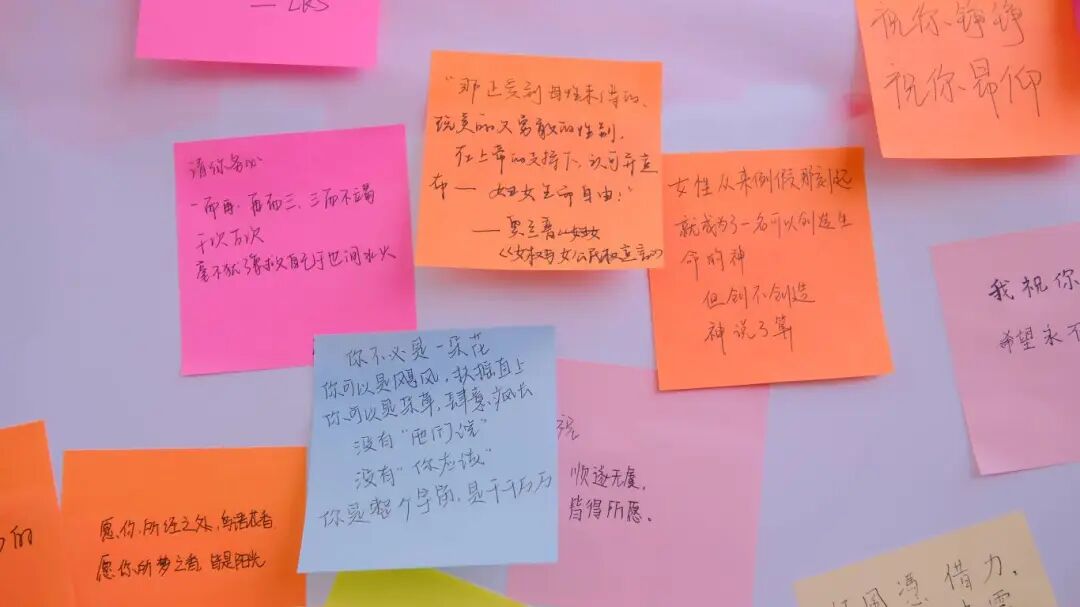 — LRS
祝你铮铮
祝你昂仰
"那些受到
玩美丽又勇敢的性别,
在上帝的支持下,认可并宣
布——妇女生而自由:"
《女权与女公民权宣言》
请你务必
一而再、再而三、三而不竭
千次万次
毫不犹豫救自己于世间水火
女性从来例假那刻起
就成为了一名可以创造生
命的神
但创不创造
神说了算
我祝你
希望永不
你不必是一朵花
你可以是飓风,扶摇直上
你可以是杂草,肆意疯长
没有"他们说"
没有"你应该"
你是整个宇宙,是千千万万
祝
顺遂无虞,
皆得所愿。
的
愿你所经之处,鸟语花香
愿你所梦之者,皆是阳光
凭借力,